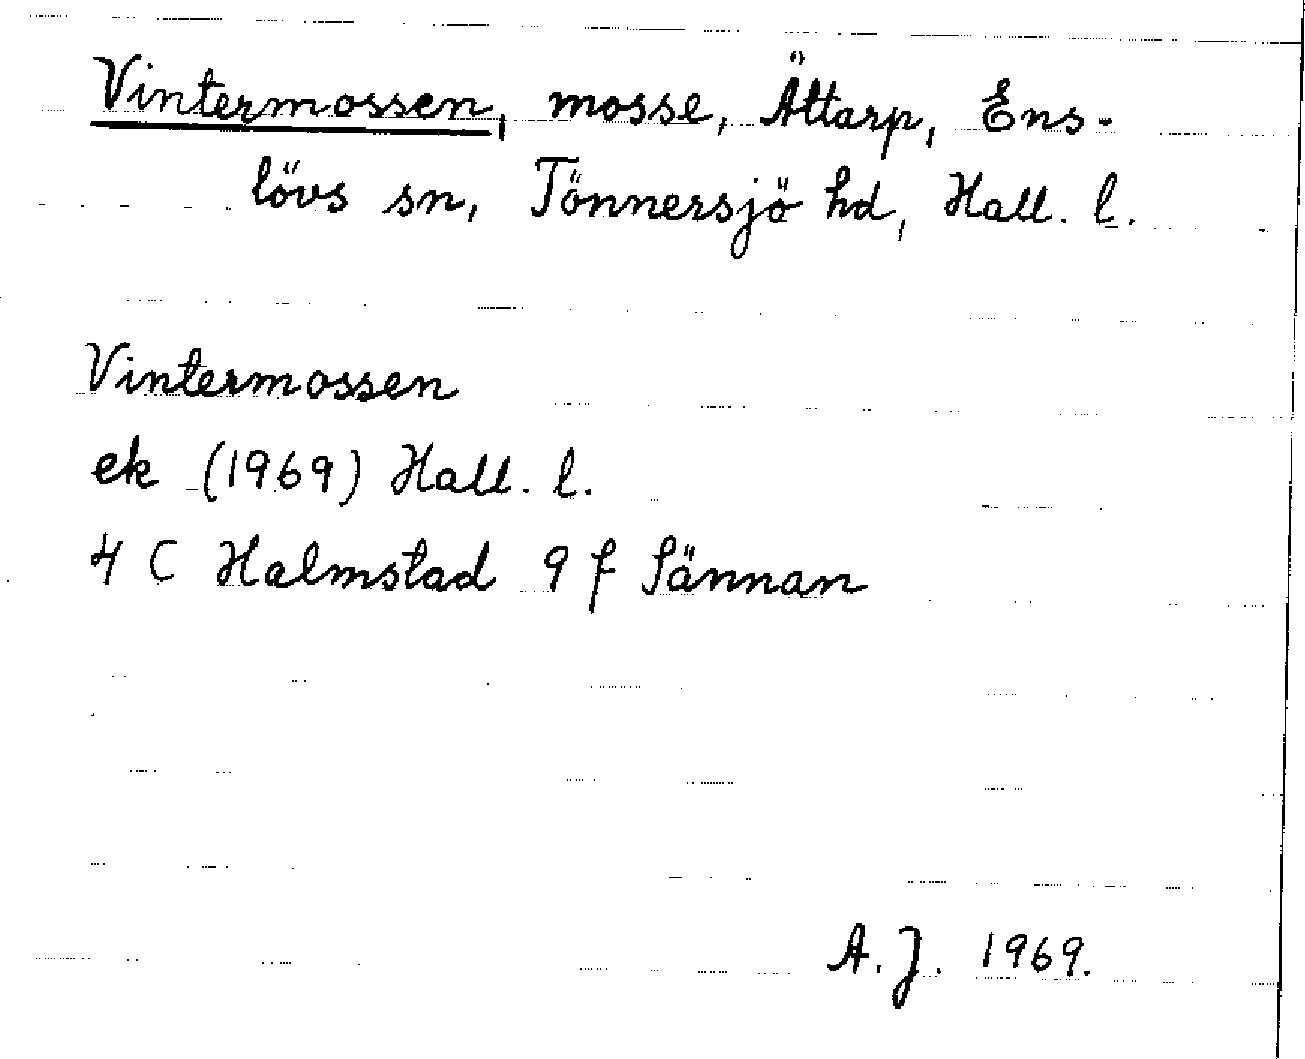 Vintermossen, mosse, Ättarp, Ens-
lövs sn, Tönnersjö hd, Hall. l.
Vintermossen
ek (1969) Hall. l.
4 C Halmstad 9 f Sännan
A. J. 1969.